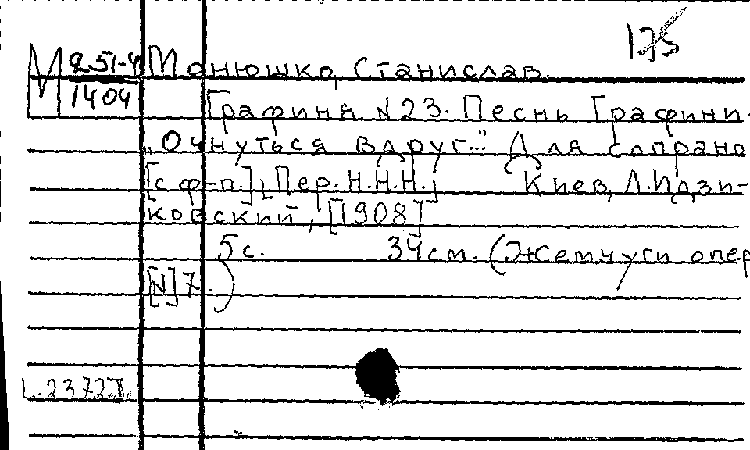 175
М 251-4 Монюшко, Станислав.
1404
Графиня N 23. Песнь Графини.
„Очнуться вдруг..." Для сопрано
[с ф-п]. [Пер. Н.Н.Н.] Киев, Л. Идзи-
ковский, [1908]
5 с. 34 см. (Жемчуги опер
[N] 7.)